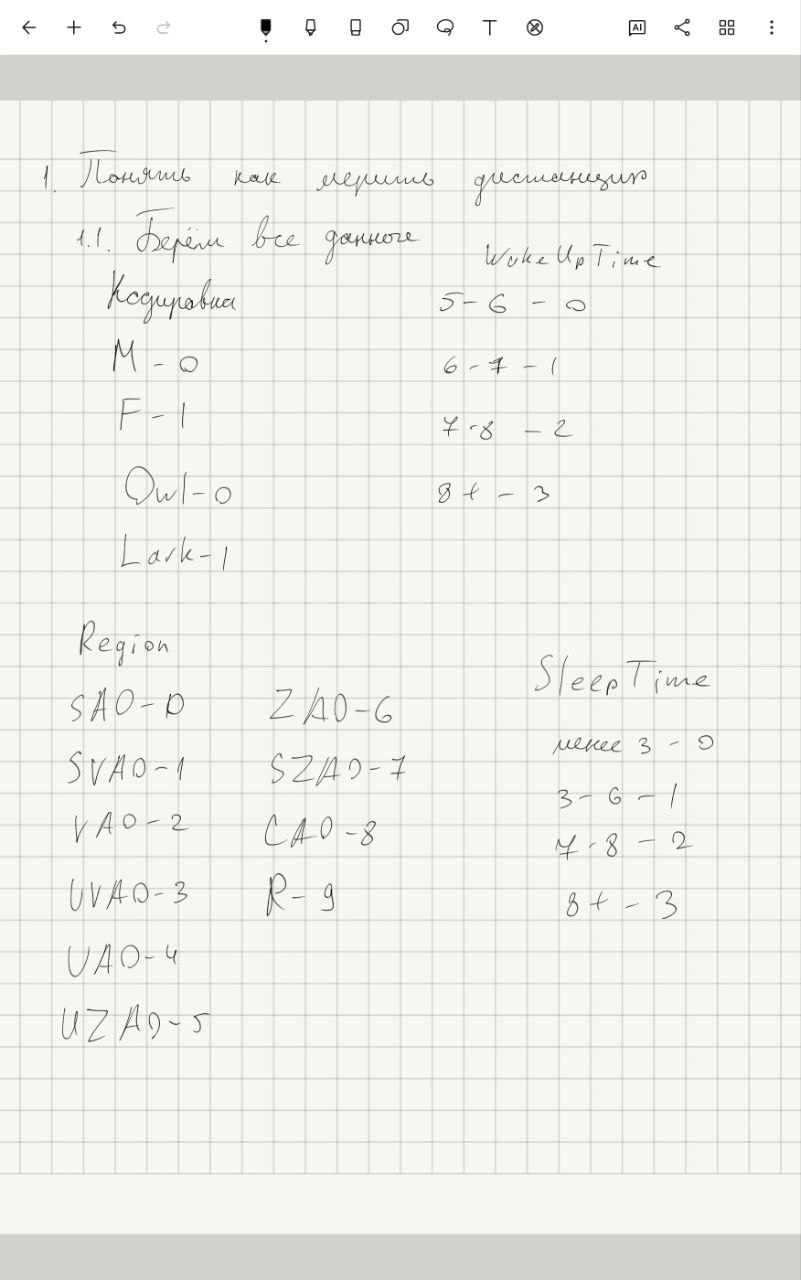 1. Понять как мерить дистанцию
1.1. Берём все данные
Кодировка
M - 0
F - 1
Owl - 0
Lark - 1
WakeUpTime
5 - 6 - 0
6 - 7 - 1
7 - 8 - 2
8+ - 3
Region
SAO - 0
SVAO - 1
VAO - 2
UVAO - 3
UAO - 4
UZAO - 5
ZAO - 6
SZAO - 7
CAO - 8
R - 9
SleepTime
менее 3 - 0
3 - 6 - 1
7 - 8 - 2
8+ - 3